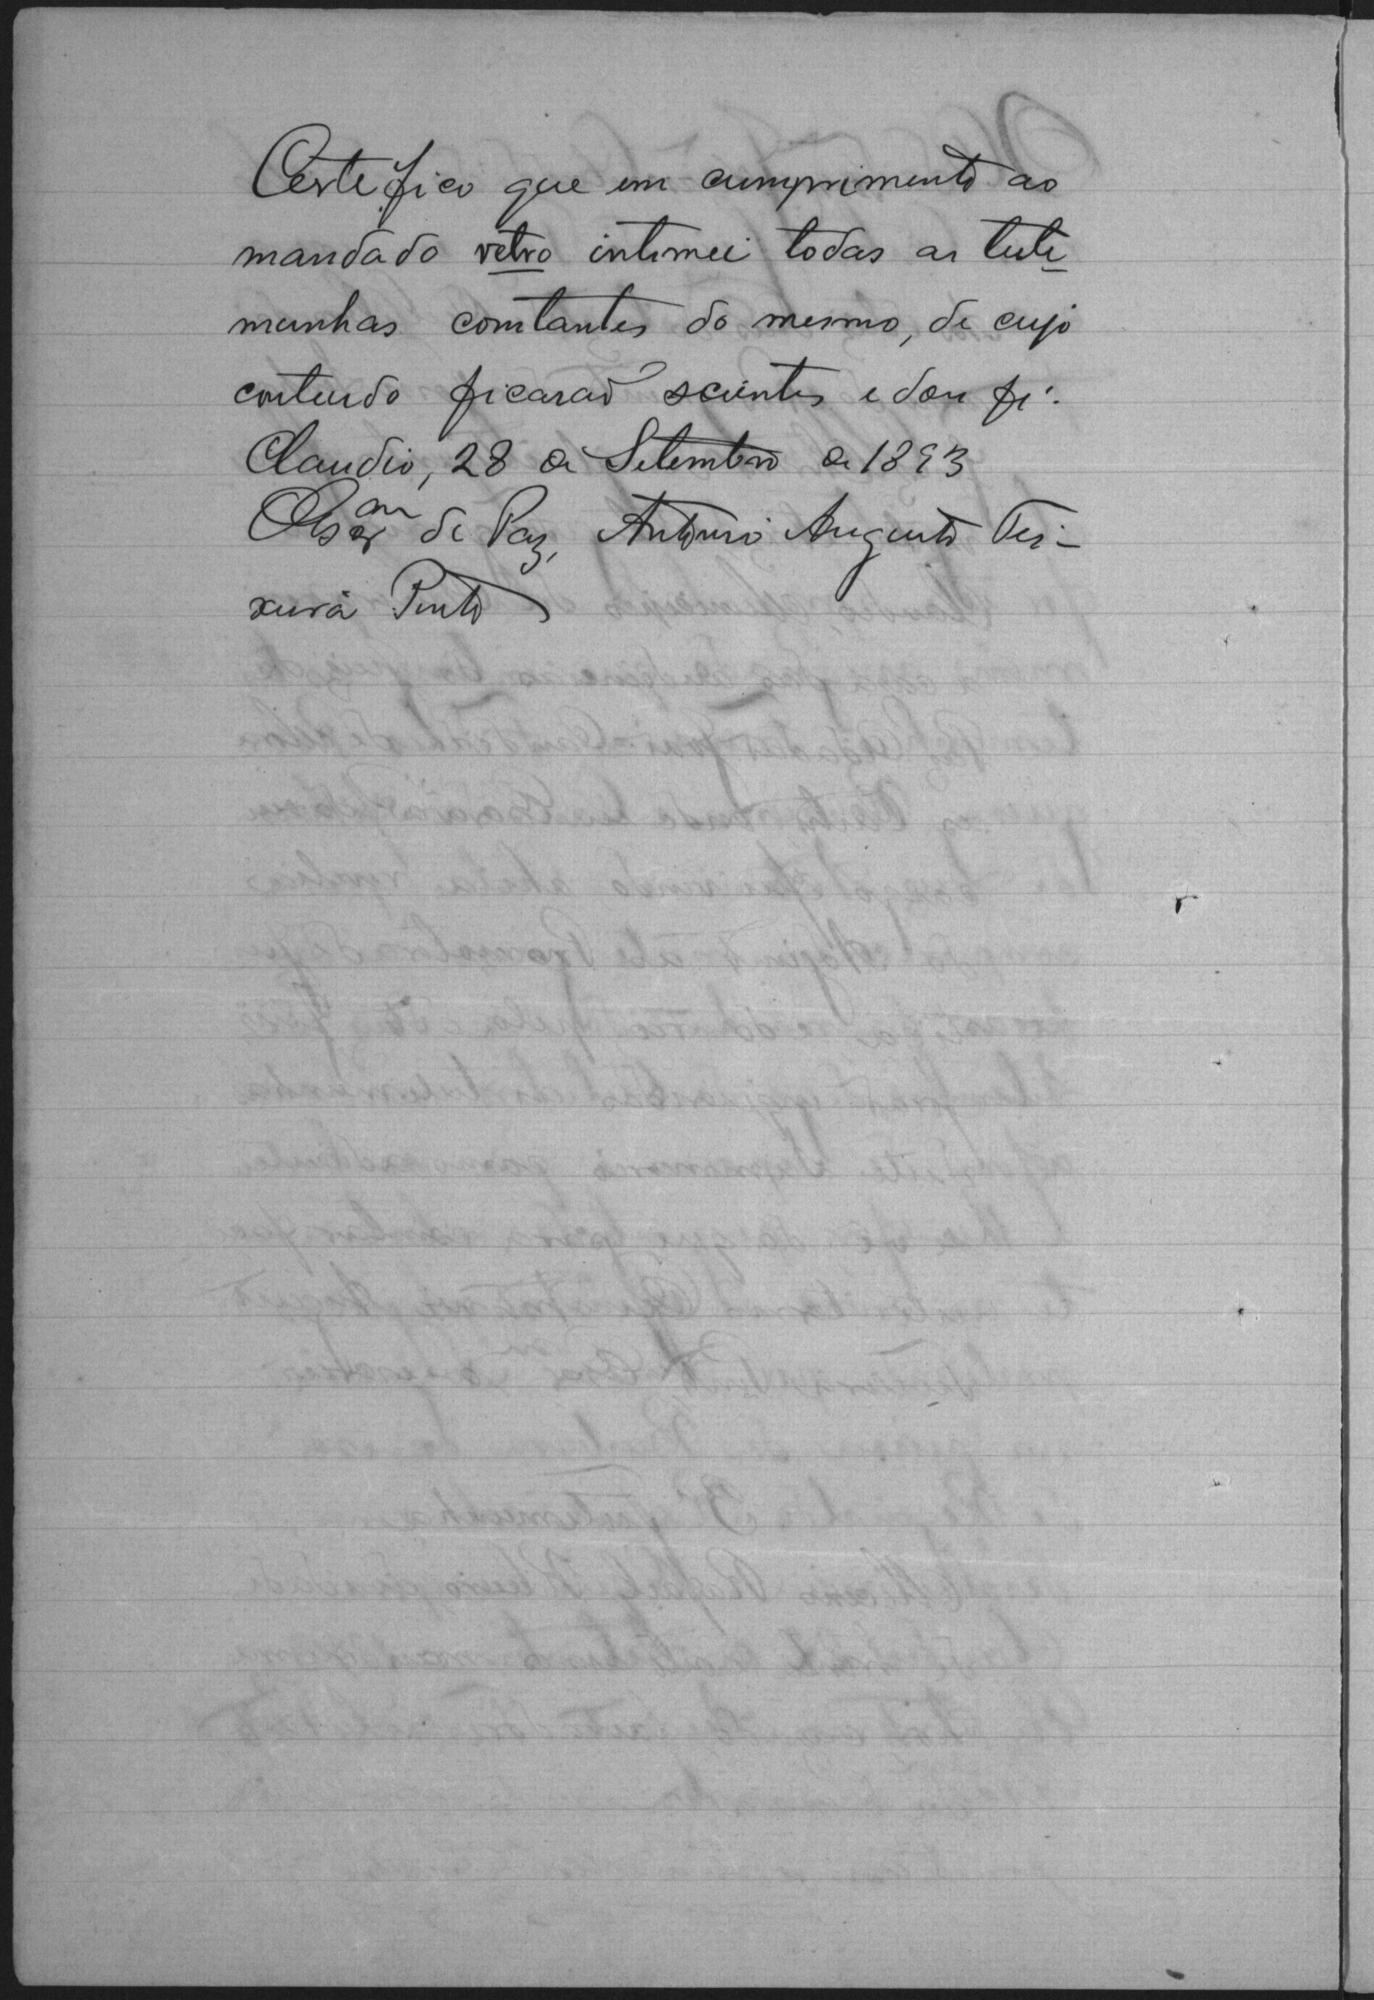 Certifico que em cumprimento ao
mandado retro intimei todas as teste
munhas constantes do mesmo, de cujo
conteudo ficarão scientes e dou fé.
Claudio, 28 de Setembro de 1893
de Paz, Antonio Augusto Tei-
xeira Pinto